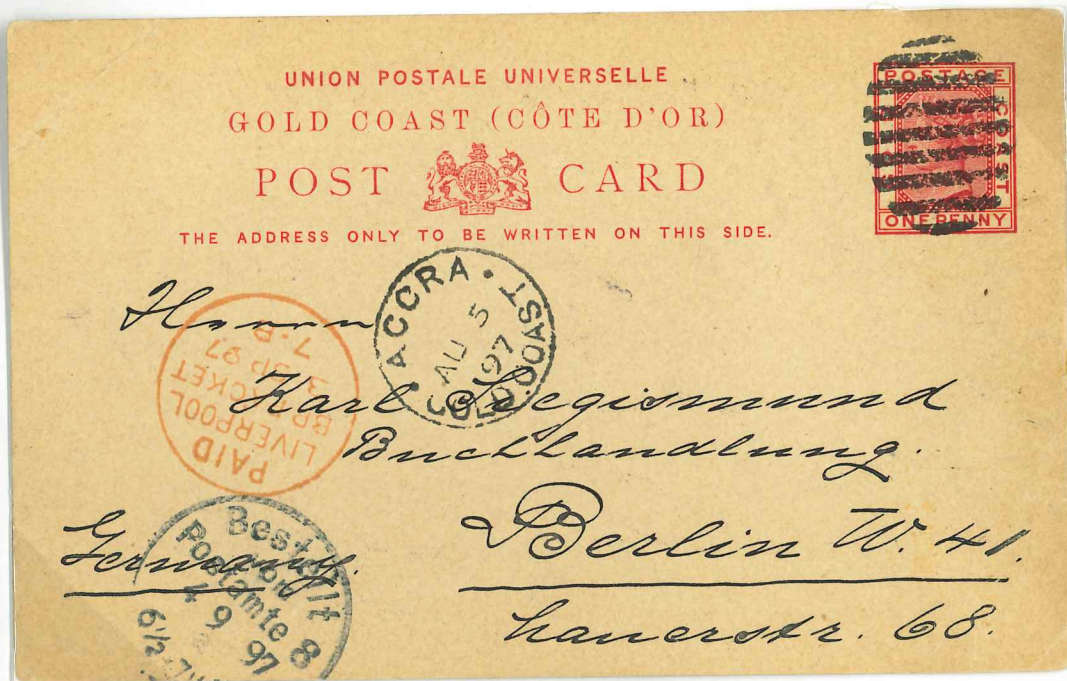 UNION POSTALE UNIVERSELLE
GOLD COAST (CÔTE D'OR)
POST CARD
THE ADDRESS ONLY TO BE WRITTEN ON THIS SIDE.
POSTAGE
COAST
ONE PENNY
ACCRA
AU 5
97
GOLD COAST
PAID
LIVERPOOL
BR PACKET
3 SP 97
7.B
Herrn
Karl Siegismund
Buchhandlung.
Berlin W. 41.
Germany.
Mauerstr. 68.
Bestellt
von
Postamte 8
4 9 97
6½